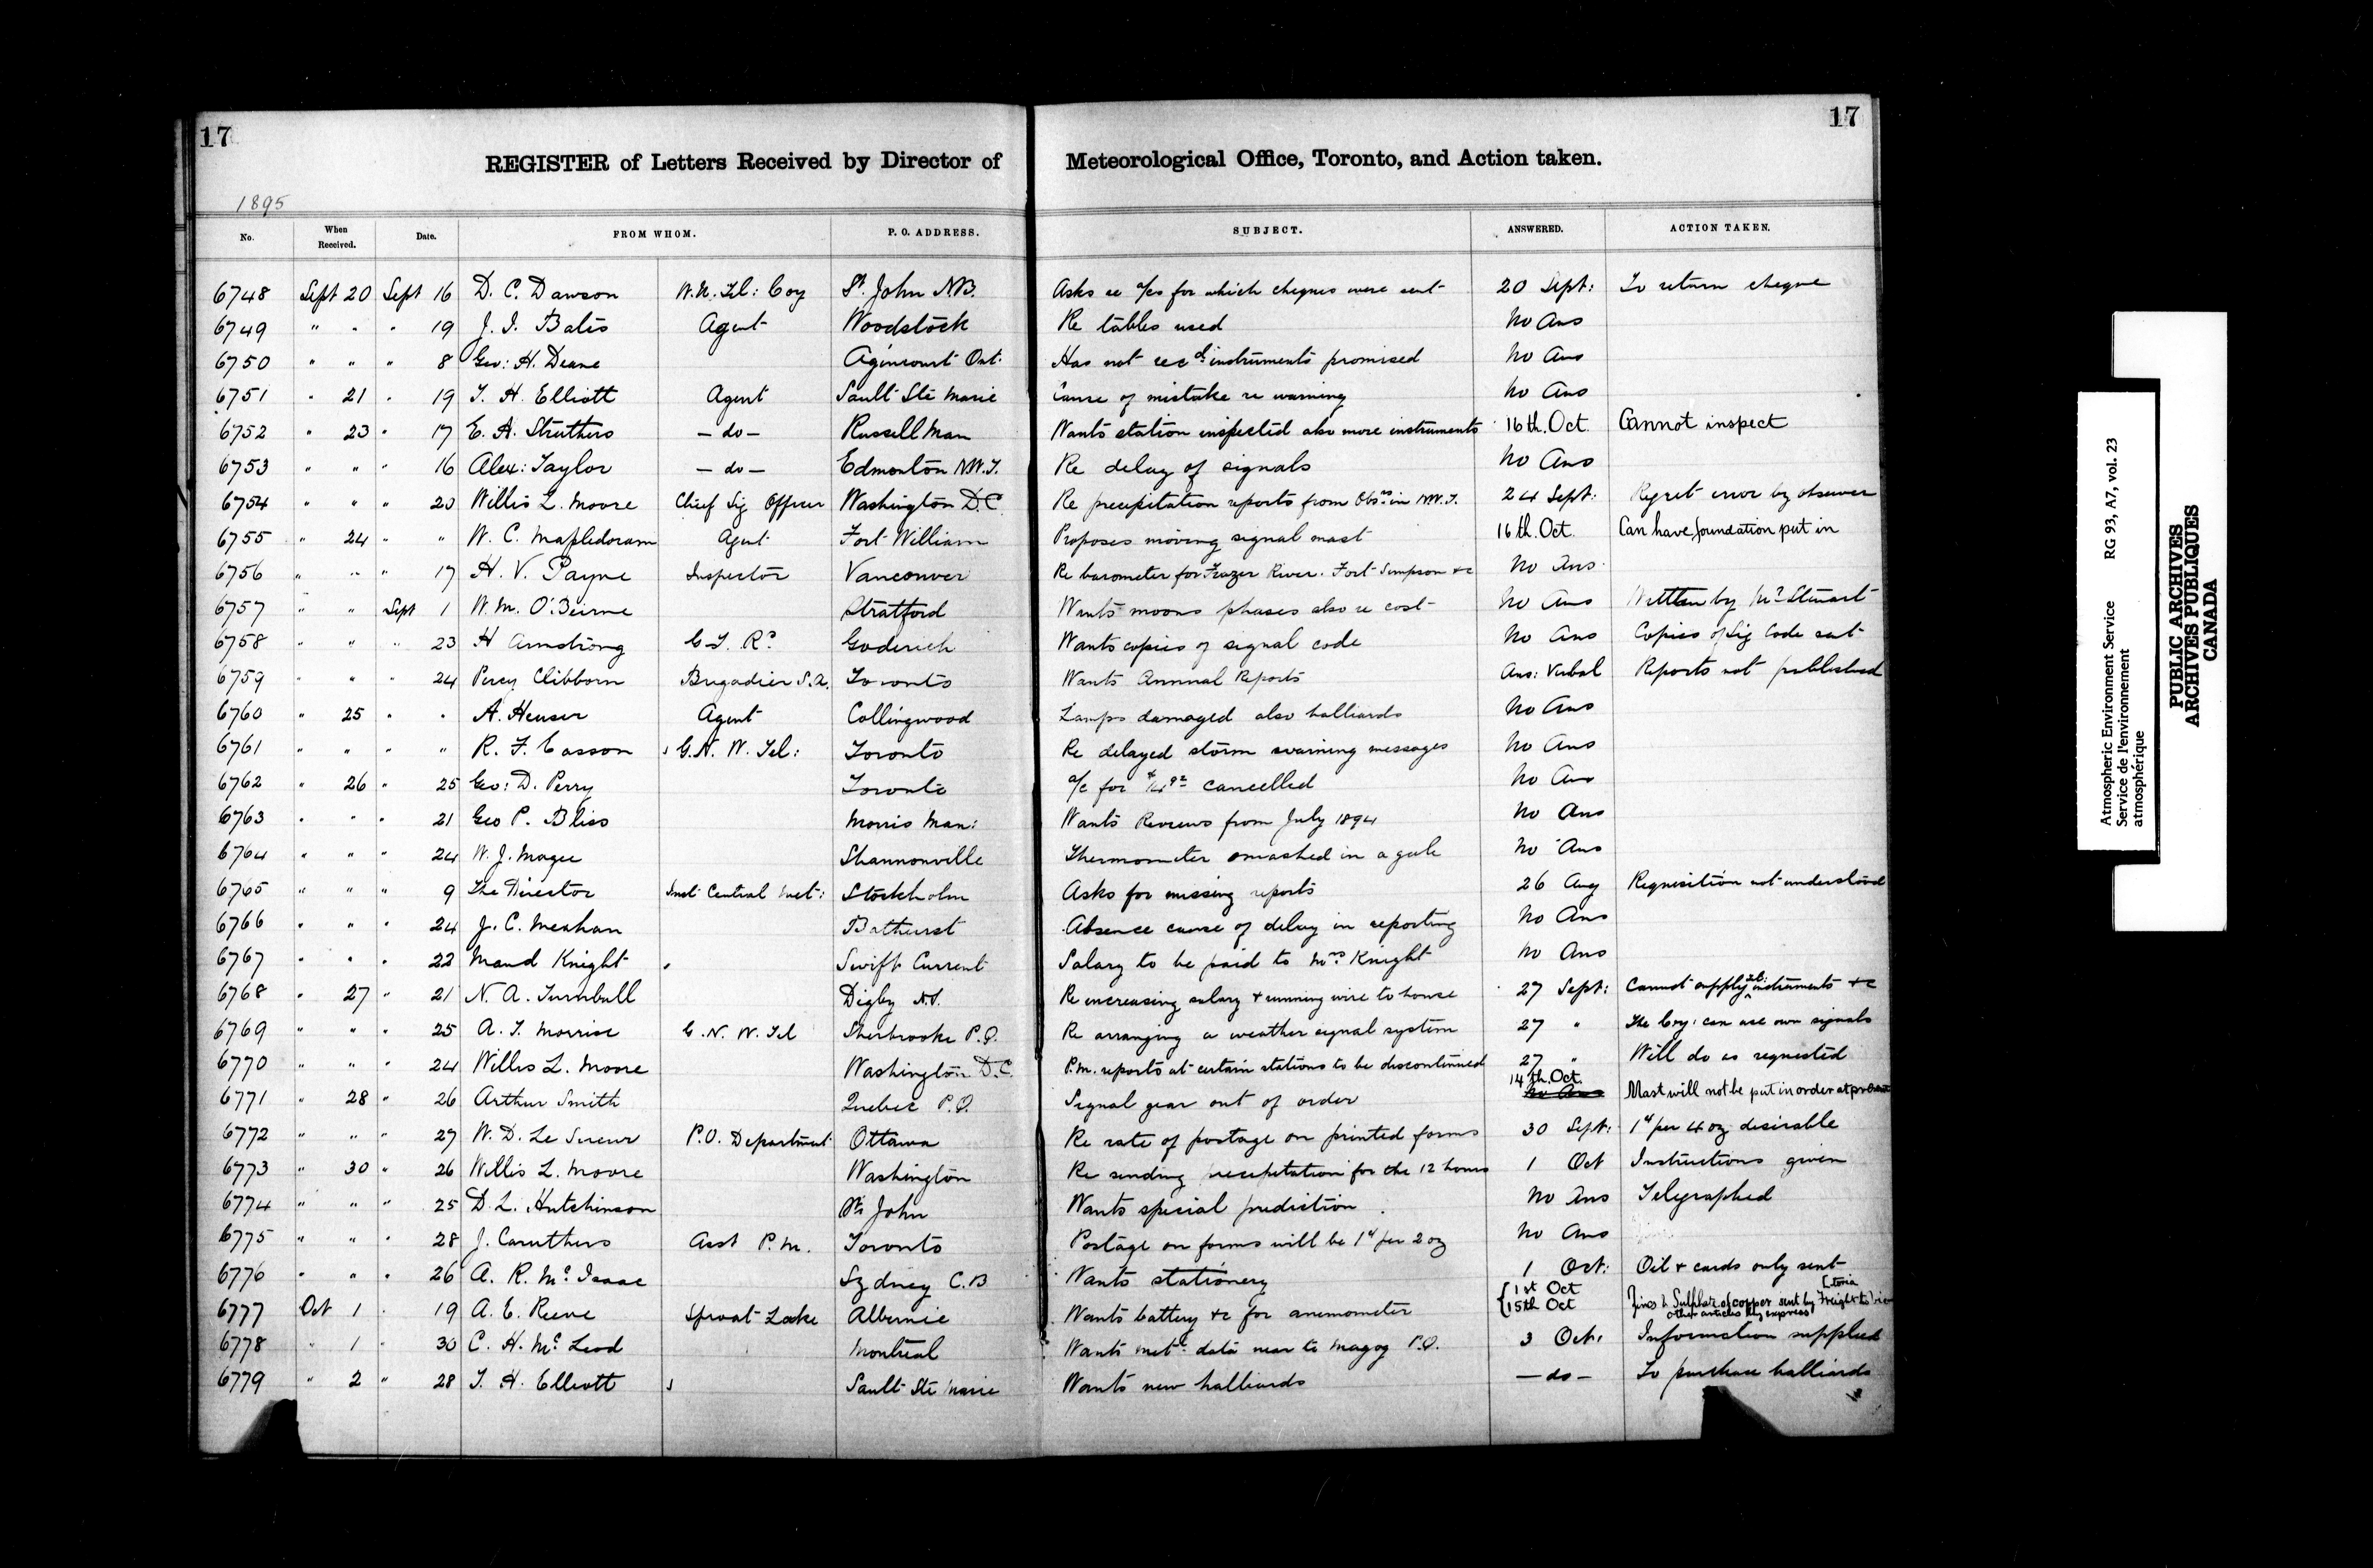 17
17
REGISTER of Letters Received by Director of Meteorological Office, Toronto, and Action taken.
1895
No. When Received. Date. FROM WHOM. P. O. ADDRESS. SUBJECT. ANSWERED. ACTION TAKEN.
6748 Sept 20 Sept 16 D. C. Dawson W. U. Tel: Coy St. John N.B. Asks re a/cs for which cheques were sent 20 Sept: To return cheque
6749 " " " 19 J. I. Bates Agent Woodstock Re tables used No Ans
6750 " " " 8 Geo: H. Deane Agincourt Ont. Has not recd. instruments promised No Ans
6751 " 21 " 19 T. H. Elliott Agent Sault Ste Marie Cause of mistake re warning No Ans
6752 " 23 " 17 E. A. Struthers — do — Russell Man Wants station inspected also more instruments 16th. Oct. Cannot inspect
6753 " " " 16 Alex: Taylor — do — Edmonton N.W.T. Re delay of signals No Ans
6754 " " " 20 Willis L. Moore Chief Sig Officer Washington D.C. Re precipitation reports from Obsrs in N.W.T. 24 Sept: Regret error by observer
6755 " 24 " " W. C. Mapledoram Agent Fort William Proposes moving signal mast 16th. Oct. Can have foundation put in
6756 " " " 17 H. V. Payne Inspector Vancouver Re barometer for Frazer River. Fort Simpson &c No Ans.
6757 " " Sept 1 W. M. O'Beirne Stratford Wants moons phases also re cost No Ans Written by Mr Stewart
6758 " " " 23 H Armstrong G. T. Ry Goderich Wants copies of signal code No Ans Copies of Sig Code sent
6759 " " " 24 Percy Clibborn Brigadier S.A. Toronto Wants Annual Reports Ans: Verbal Reports not published
6760 " 25 " " A. Heuser Agent Collingwood Lamps damaged also halliards No Ans
6761 " " " " R. F. Easson G. N. W. Tel: Toronto Re delayed storm warning messages No Ans
6762 " 26 " 25 Geo: D. Perry Toronto a/c for cancelled No Ans
6763 " " " 21 Geo P. Bliss Morris Man: Wants Reviews from July 1894 No Ans
6764 " " " 24 W. J. Magee Shannonville Thermometer smashed in a gale No Ans
6765 " " " 9 The Director Inst Central Met: Stockholm Asks for missing reports 26 Aug Requisition not understood
6766 " " " 24 J. C. Meahan Bathurst Absence cause of delay in reporting No Ans
6767 " " " 22 Maud Knight Swift Current Salary to be paid to Mrs. Knight No Ans
6768 " 27 " 21 N. A. Turnbull Digby N.S. Re increasing salary & running wire to house 27 Sept: Cannot supply tel: instruments &c
6769 " " " 25 A. T. Morrise G. N. W. Tel Sherbrooke P.Q. Re arranging a weather signal system 27 " The Coy: can use own signals
6770 " " " 24 Willis L. Moore Washington D.C. P.M. reports at certain stations to be discontinued 27 " Will do as requested
6771 " 28 " 26 Arthur Smith Quebec P.Q. Signal gear out of order 14th. Oct. No Ans Mast will not be put in order at present
6772 " " " 27 W. D. Le Sueur P.O. Department Ottawa Re rate of postage on printed forms 30 Sept: 1ct per 4 oz desirable
6773 " 30 " 26 Willis L. Moore Washington Re sending precipitation for the 12 hours 1 Oct Instructions given
6774 " " " 25 D. L. Hutchinson St. John Wants special prediction No Ans Telegraphed
6775 " " " 28 J. Caruthers Asst P.M. Toronto Postage on forms will be 1ct per 2 oz No Ans
6776 " " " 26 A. R. Mc. Isaac Sydney C.B Wants stationery 1 Oct: Oil & cards only sent
6777 Oct 1 " 19 A. E. Reeve Sproat Lake Albernie Wants battery &c for anemometer { 1st Oct 15th Oct Zincs & Sulphate of copper sent by Freight to Victoria other articles by express
6778 " 1 " 30 C. H. Mc. Leod Montreal Wants metl. data near to Magog P.Q. 3 Oct: Information supplied
6779 " 2 " 28 T. H. Elliott Sault Ste Marie Wants new halliards — do — To purchase halliards
Atmospheric Environment Service RG 93, A7, vol. 23
Service de l'environnement
atmosphérique
PUBLIC ARCHIVES
ARCHIVES PUBLIQUES
CANADA